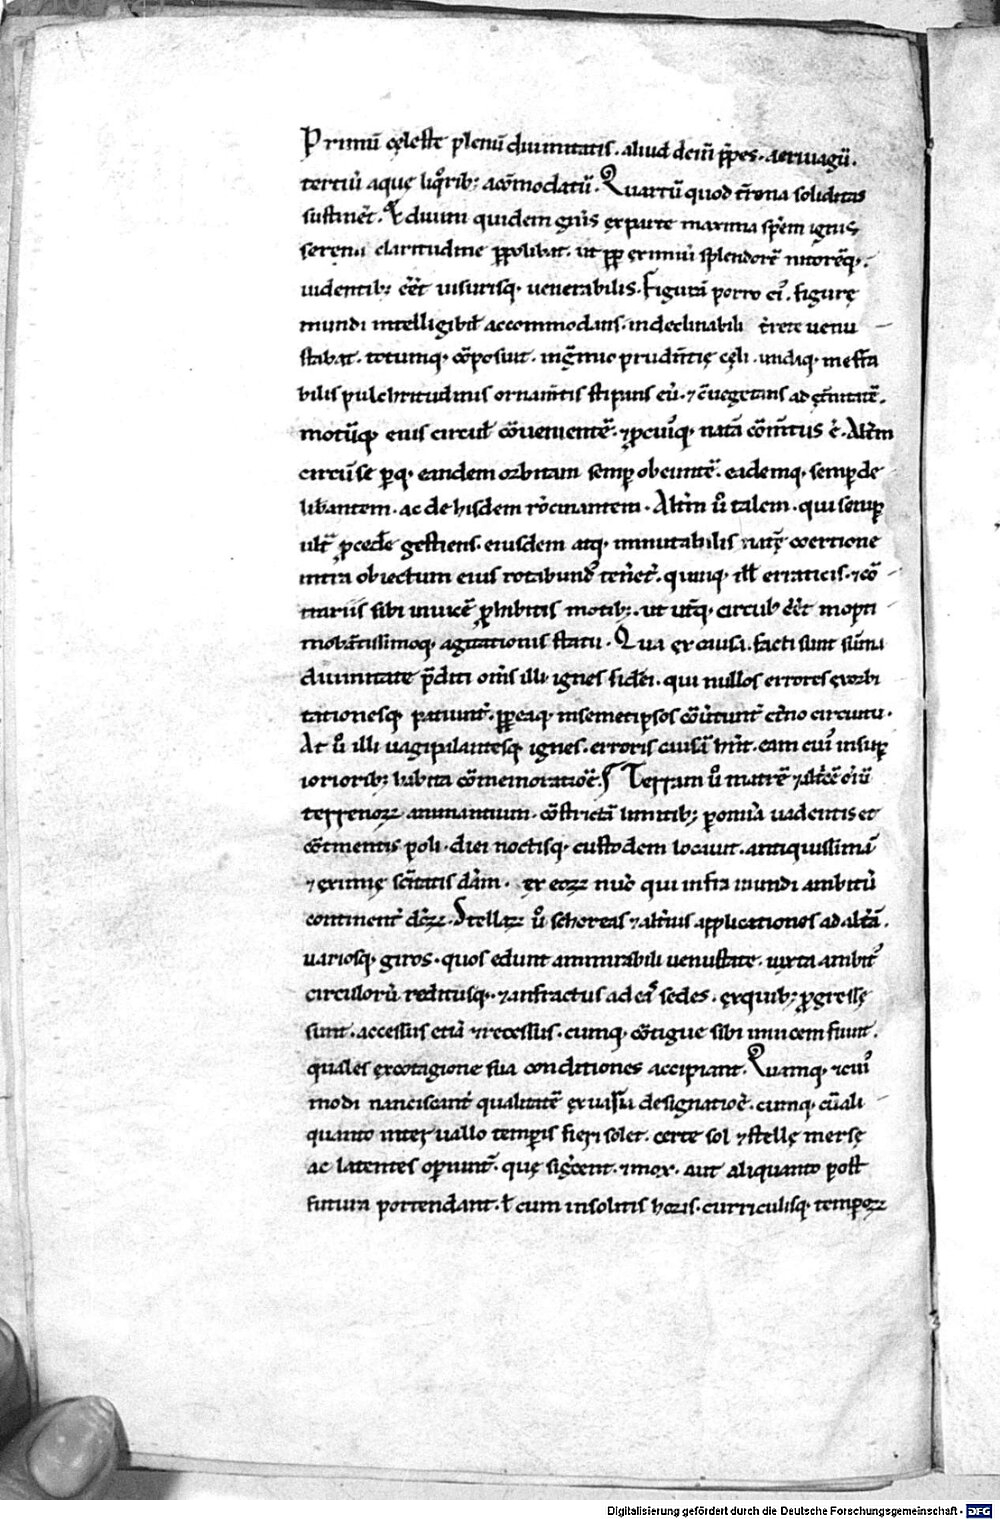 Primū cęleste plenū diuinitatis. aliud deīn p̄pes. aeriuagū.
tertiū aquę liq̊rib; acōmodatū. Quartū quod t̄rena soliditas
sustinet̄. Et diuini quidem gn̄is ex parte maxima sp̄em ignis
serena claritudine ꝑpolibat. ut ꝓp̄ eximiū splendorē nitorēq;
uidentib; eēt uisuisq; uenerabilis. Figurā porro eī. figurę
mundi intelligibił accommodans. indeclinabili t̄rere uenu
stabat. totumq; cōposuit. in gremio prudn̄tię cęli. undiq; ineffa
bilis pulchritudinis ornam̄tis stipans eū. ⁊ cuegetans ad et̄nitatē.
motūq; eius circuł cōuenientē. ⁊ ꝓcuiq; natā cōm̄tus ē. Alt̄m
circū se ꝑq; eandem orbitam semꝑ obeuntē. eademq; semꝑ de
liberantem. ac de hisdem rōcinantem. Alt̄m ů talem. qui semꝑ
ult̄ ꝓcedē gestiens. eiusdem atq; inmutabilis naturę coertione
intra obiectum eius rotabundꝰ tenet̄. quinq; iłł erraticis. ⁊ cō
trariis sibi inuicē ꝓhibitis motib;. ut ut̄q; circuł eēt in opti
mo beatissimoq; agitationis statu. Qua ex causa. facti sunt sūma
diuinitate p̄diti om̄s illi ignes sideī. qui nullos errores exorbi
tationesq; patiunt̄. ꝓp̄eaq; in semetipsos cōuertunt̄ et̄no circuitu.
At ů illi uagi palantesq; ignes. erroris causā hn̄t. eam cuiꝰ in suꝑ
iorib; habita cōmemoratio ē. Terram ů matrē ⁊ altricē om̄iū
terrenoꝝ animantium. cōstrictā limitib; ꝑ omnia uadentis et
cōtinentis poli. diei noctisq; custodem locauit. antiquissimā
⁊ eximię sc̄itatis dām. ex eoꝝ num̄o qui infra mundi ambitū
continent̄ deoꝝ. Stellaꝝ ů choreas ⁊ alt̄ius applicationes ad alt̄ā.
uariosq; giros. quos edunt ammirabili uenustate. iuxta ambitꝰ
circulorū reditusq;. ⁊ anfractus ad eas sedes. ex quib; ꝓgressę
sunt. accessus etiā ⁊ recessus. cumq; cōtigue sibi inuicem fiunt.
quales ex cōtagione sua conditiones accipiant. Quamq; ⁊ cuiꝰ
modi nanciscant̄ qualitatē ex uisu designatioē. cumq; cū ali
quanto interuallo temꝑis fieri solet. certe sol ⁊ stellę mersę
ac latentes oꝑiunt̄. quę signīficent. ⁊ mox. aut aliquanto post
futura portendant. ł cum insolitis horis. curriculisq; tempoꝝ
Digitalisierung gefördert durch die Deutsche Forschungsgemeinschaft - DFG